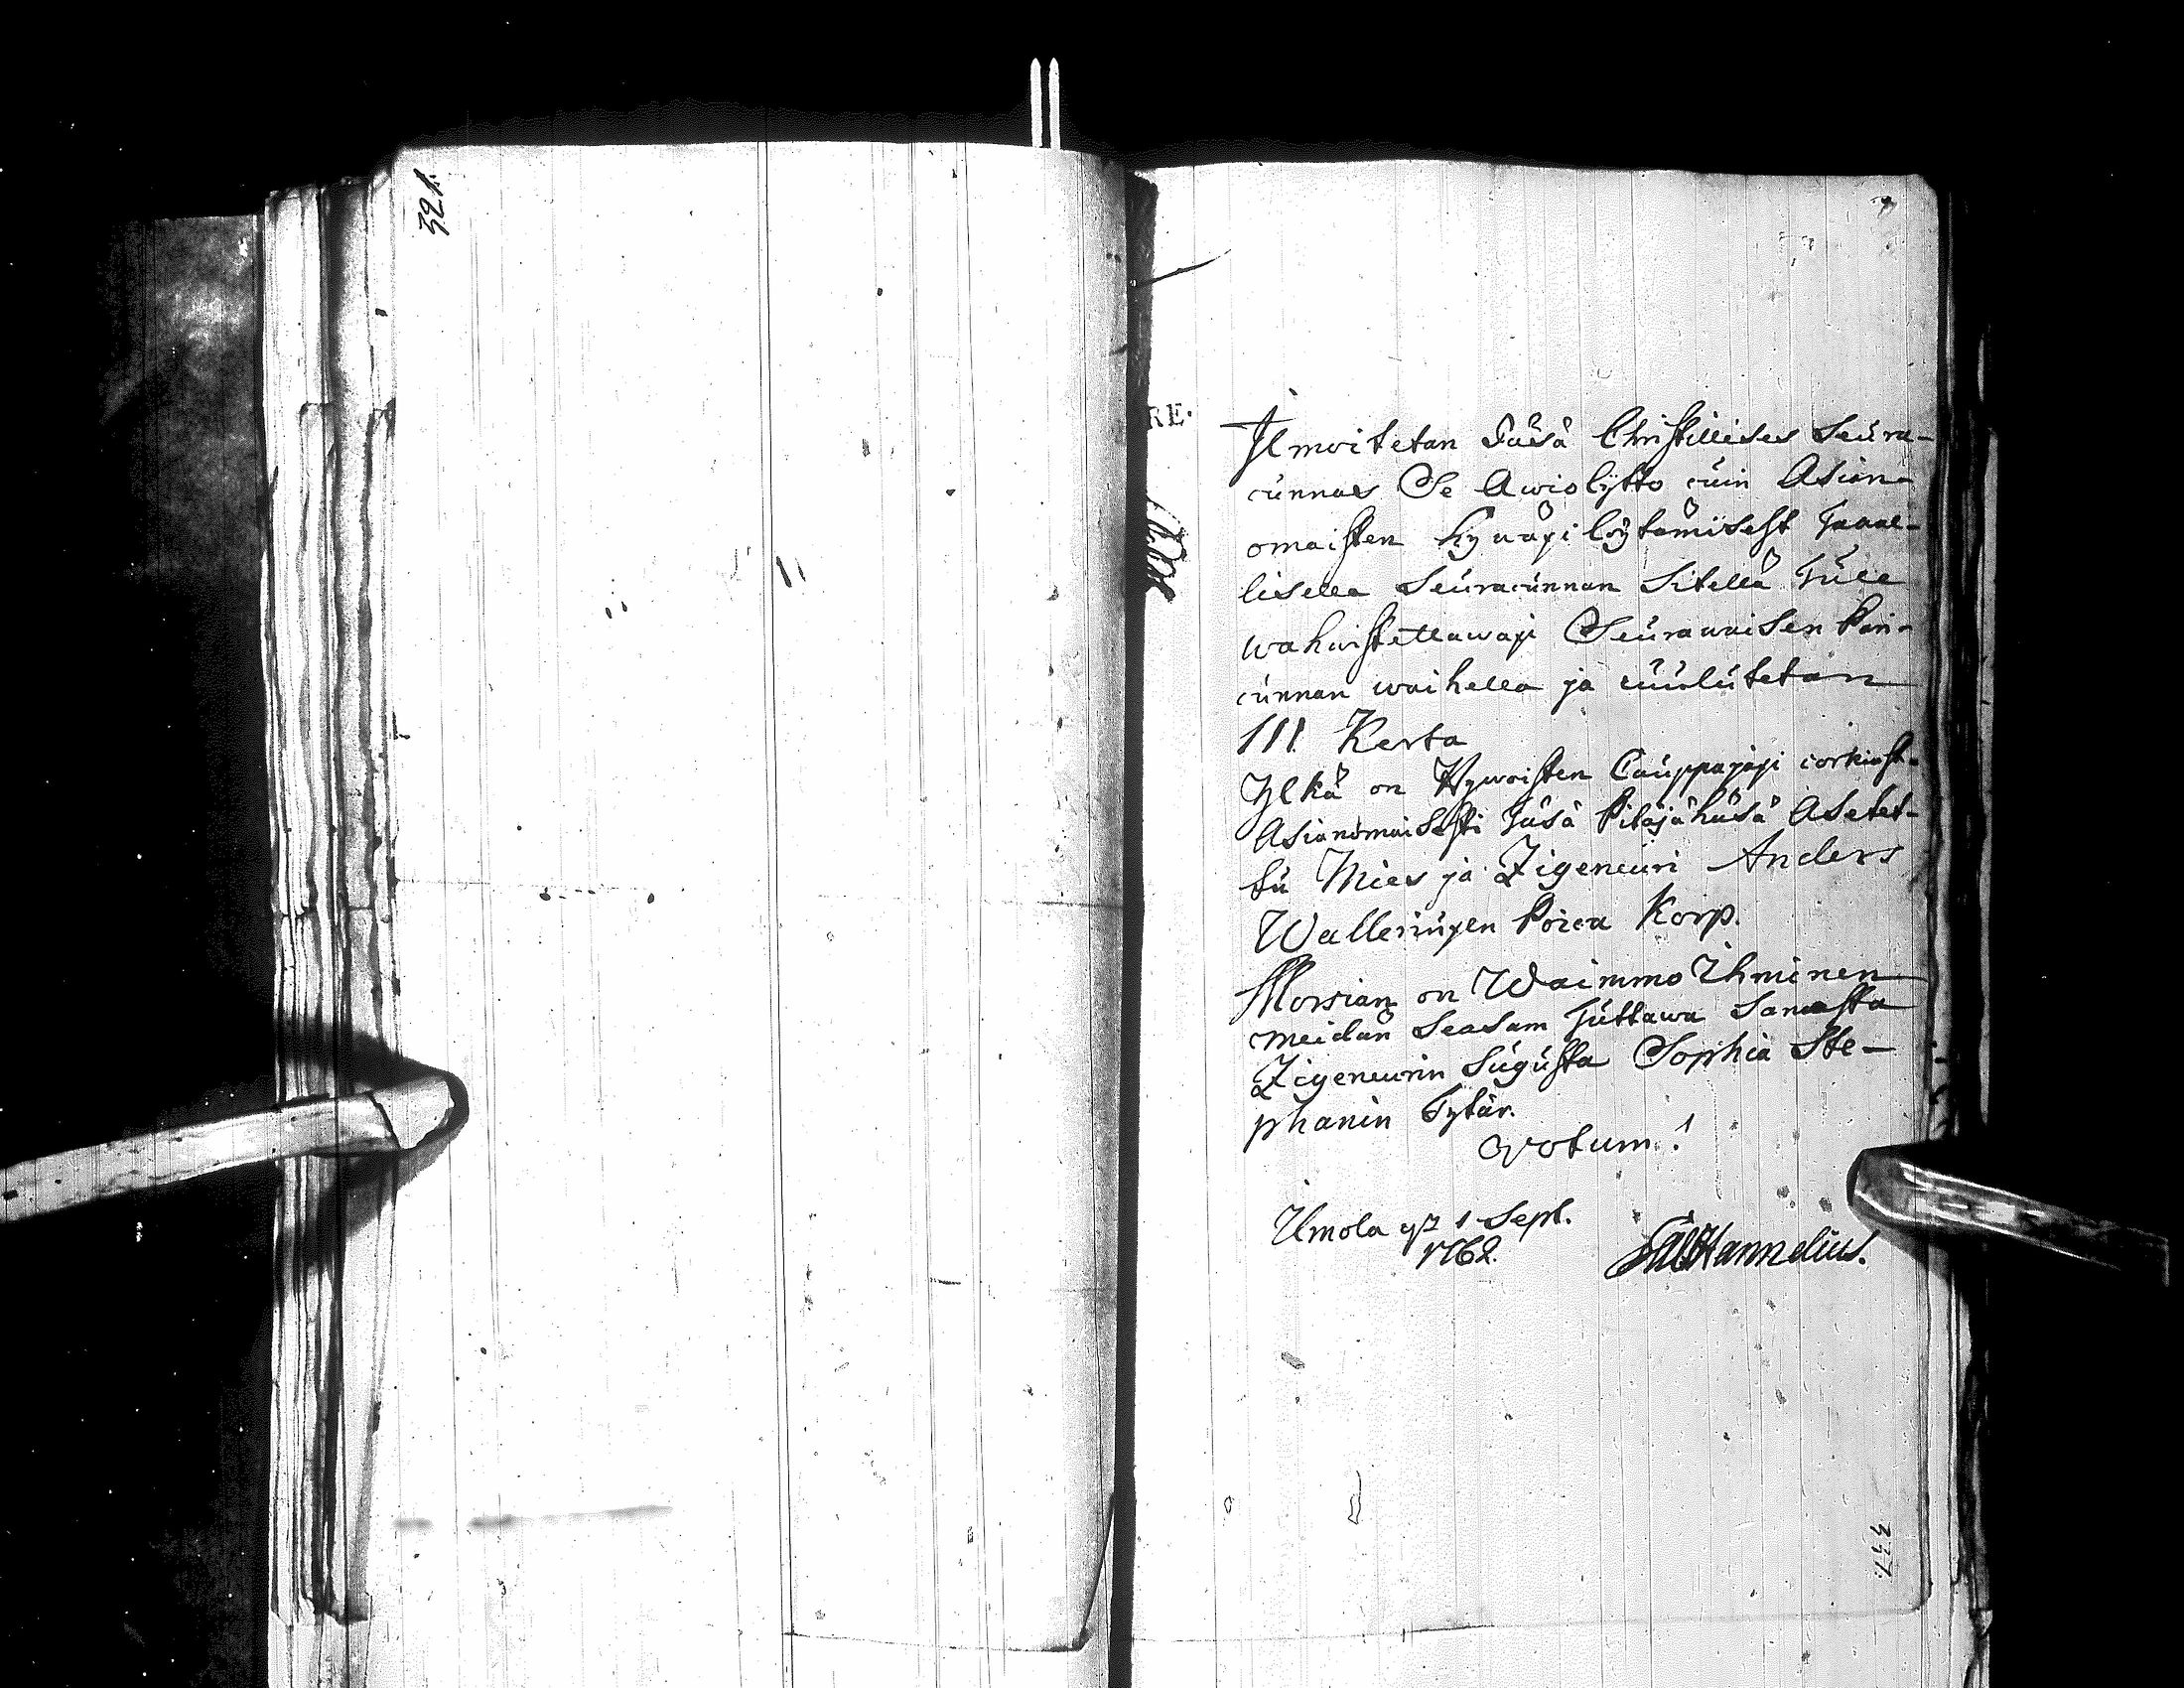 321.
RE.
Ilmoitetan Täsä Christillises Seura-
cunnas Se Awiolijtto cuin Asian-
omaisten hywäxi löytämisest Jumal-
lisella Seuracunnan Sitellä Tule
wahwistettawaxi Seurawaisen Pari-
cunnan waihella ja cuulutetan
III Kerta
Ylkä on Hywoisten Cauppajaxi corkiast-
Asianomaisesti Täsä Pitäjähäsä Asetet-
tu Mies ja Zigeneuri Anders
Walleriuxen Poica Korp.
Morsian on Waimmo Ihminen
meidän seasam Tuttawa Samasta
Zigeneurin Sugusta Sophia Ste-
phanin Tytär.
Votum!
Ilmola 1 Sept.
1762.
Hannelius.
331.